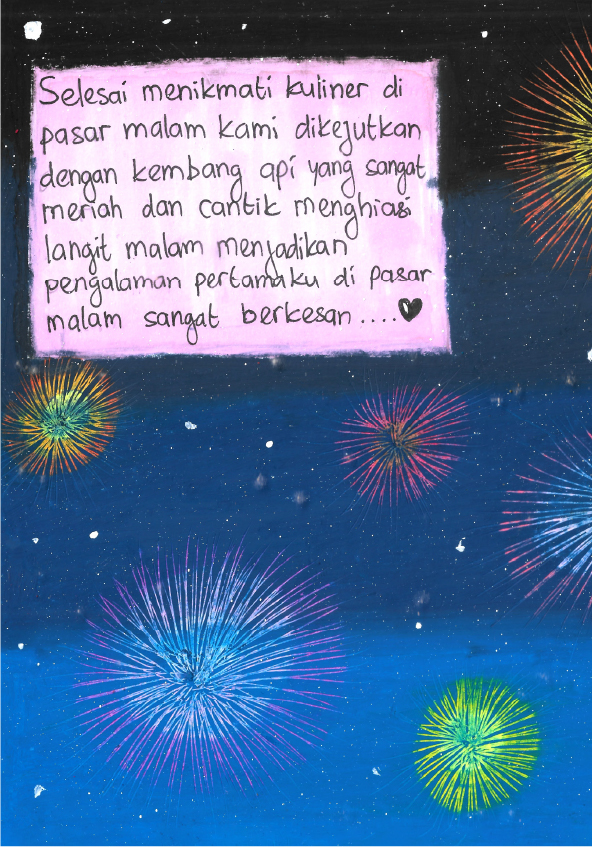 Selesai menikmati kuliner di
pasar malam kami dikejutkan
dengan kembang api yang sangat
meriah dan cantik menghiasi
langit malam menjadikan
pengalaman pertamaku di pasar
malam sangat berkesan ....♥